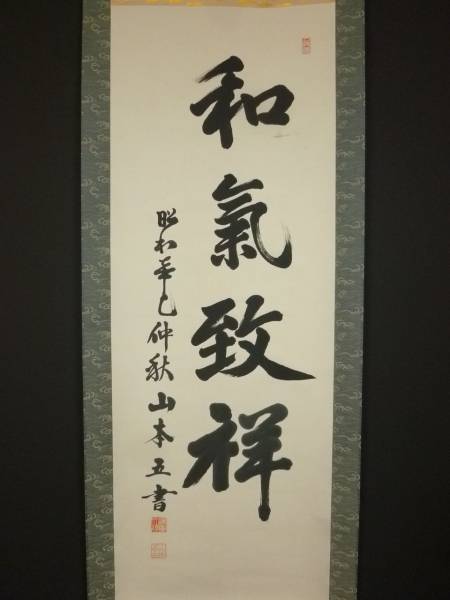 和氣致祥
昭和辛巳仲秋山本五書